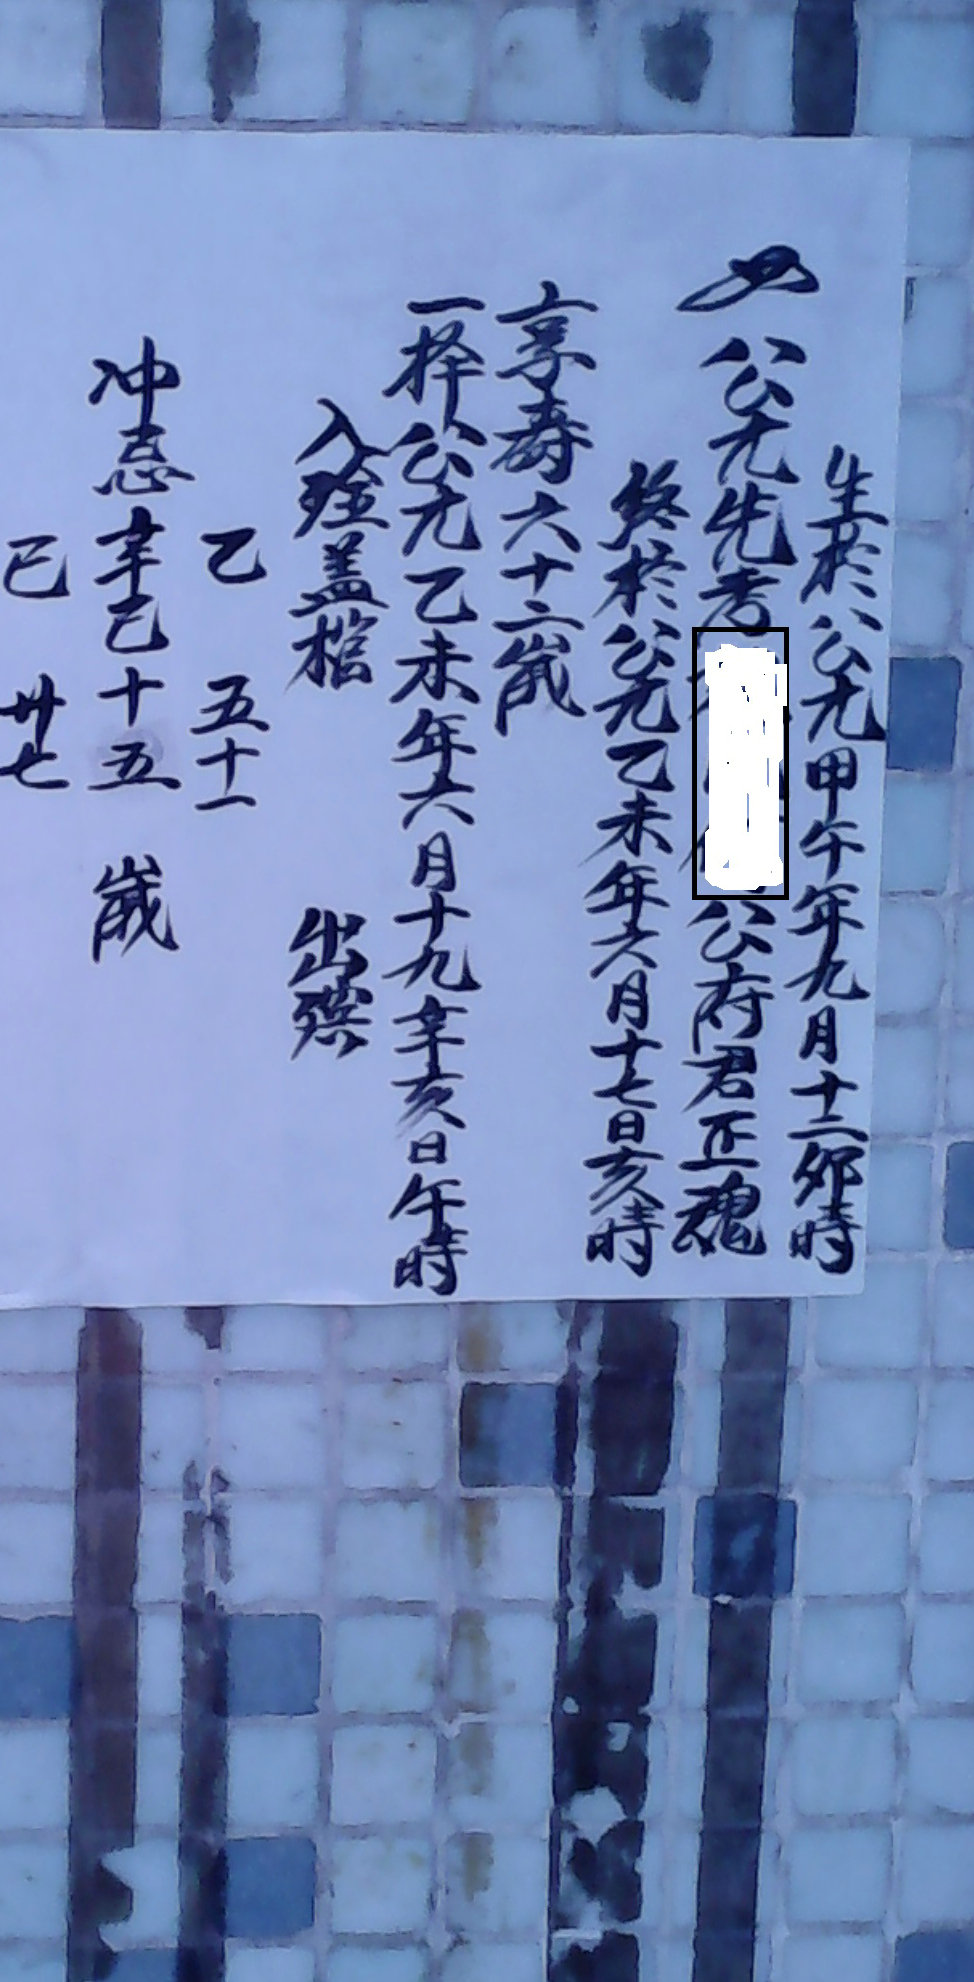 生於公元甲午年九月十二卯時
公元先考
公府君正魂
終於公元乙未年六月十七日亥時
享壽六十二歲
一择公元乙未年六月十九辛亥日午時
入殓盖棺 出殡
乙 五十一
冲忌辛巳十五 歲
已 卅七